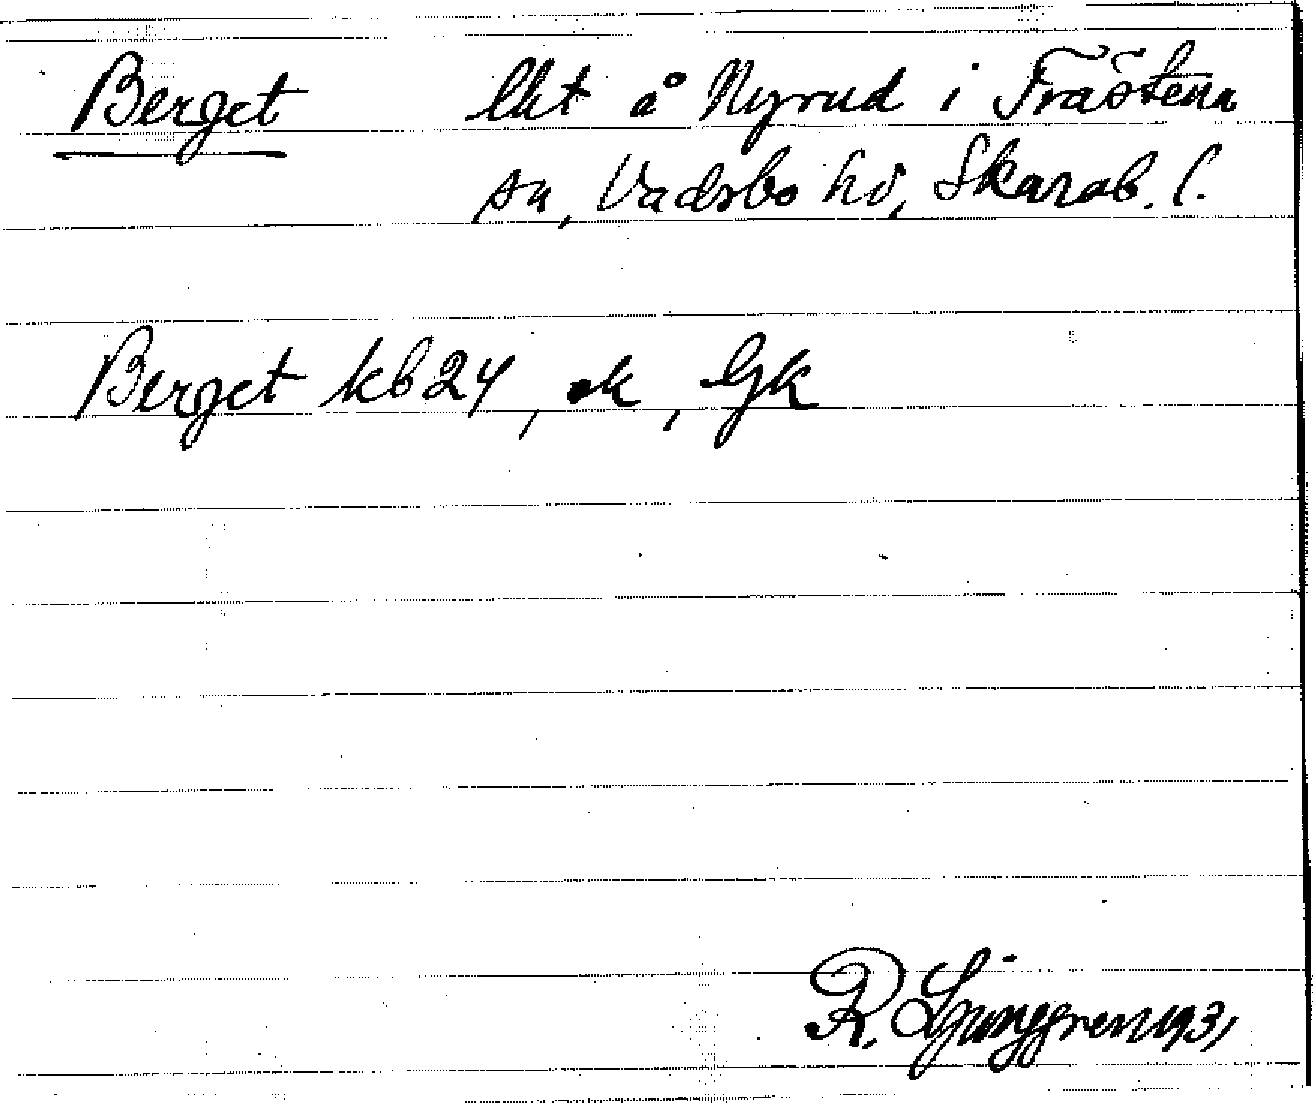 Berget lht å Nyrud i Fräštena
sn, Vadsbo hd, Skarab. l.
Berget kb 24, ek, Gk
R. Ljunggren 1931